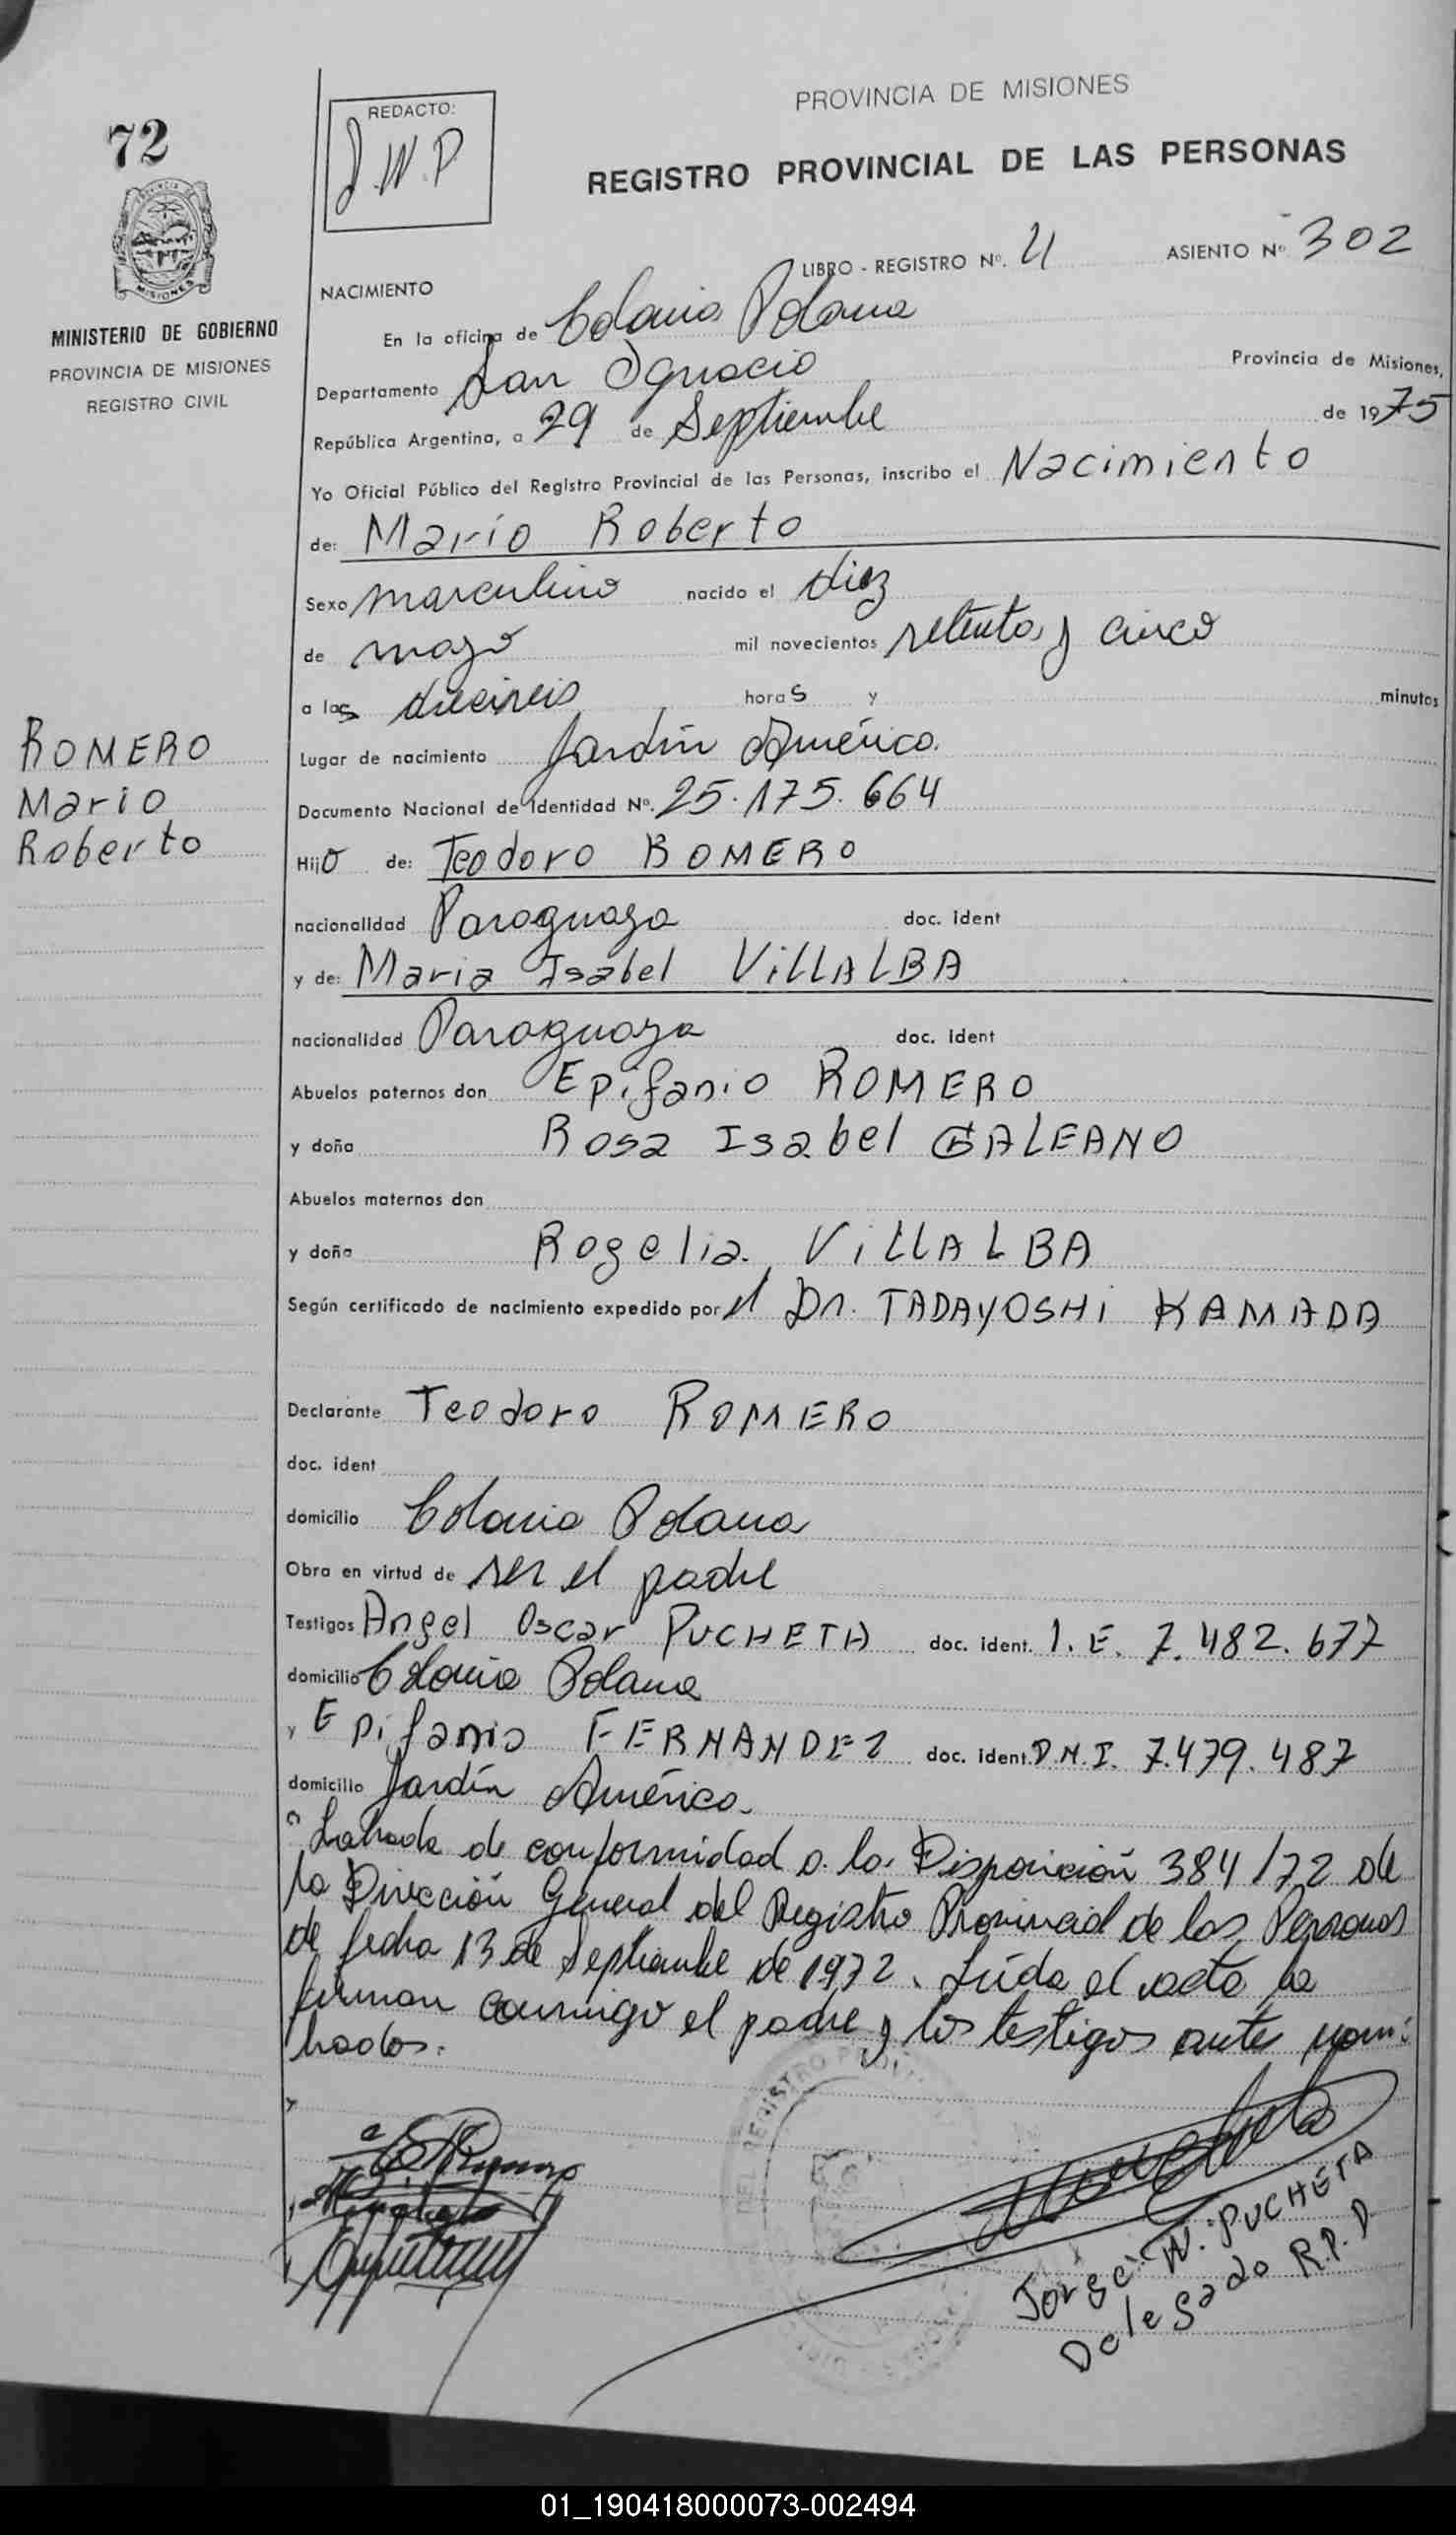 72
REDACTO:
J.W.P
PROVINCIA DE MISIONES
REGISTRO PROVINCIAL DE LAS PERSONAS
MINISTERIO DE GOBIERNO
PROVINCIA DE MISIONES
REGISTRO CIVIL
LIBRO - REGISTRO Nº. U ASIENTO Nº 302
NACIMIENTO
En la oficina de Colonia Polana
Departamento San Ignacio Provincia de Misiones,
República Argentina, a 29 de Septiembre de 1975
Yo Oficial Público del Registro Provincial de las Personas, inscribo el Nacimiento
de: Mario Roberto
Sexo masculino nacido el diez
de mayo mil novecientos setenta y cinco
a las dieciseis horas y minutos
ROMERO
Mario
Roberto
Lugar de nacimiento Jardín América.
Documento Nacional de Identidad Nº. 25.175.664
Hijo de: Teodoro ROMERO
nacionalidad Paraguaya doc. ident
y de: Maria Isabel VillALBA
nacionalidad Paraguaya doc. ident
Abuelos paternos don Epifanio ROMERO
y doña Rosa Isabel GALEANO
Abuelos maternos don
y doña Rogelia VillALBA
Según certificado de nacimiento expedido por el Dr. TADAYOSHi KAMADA
Declarante Teodoro ROMERO
doc. ident
domicilio Colonia Polana
Obra en virtud de ser el padre
Testigos Angel Oscar PUCHETA doc. ident. 1.E. 7.482.677
domicilio Colonia Polana
y Epifanio FERNANDEZ doc. ident. D.N.I. 7.479.487
domicilio Jardín América.
Labrada de conformidad a la Disposición 384/72 de
la Dirección General del Registro Provincial de las Personas
de fecha 13 de Septiembre de 1972. Leída el acta la
firman conmigo el padre y los testigos antes nom-
brados.
Jorge W. PUCHETA
Delegado R.P.P
01_190418000073-002494